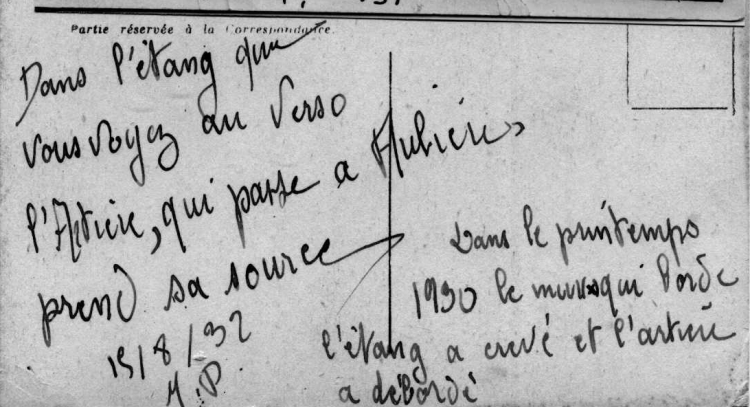 Partie réservée à la Correspondance.
Dans l'étang que
vous voyez au verso
l'Artière, qui passe a Aubière,
prend sa source
15/8/32
M.P.
Dans le printemps
1930 le mur qui borde
l'étang a crevé et l'artière
a débordé